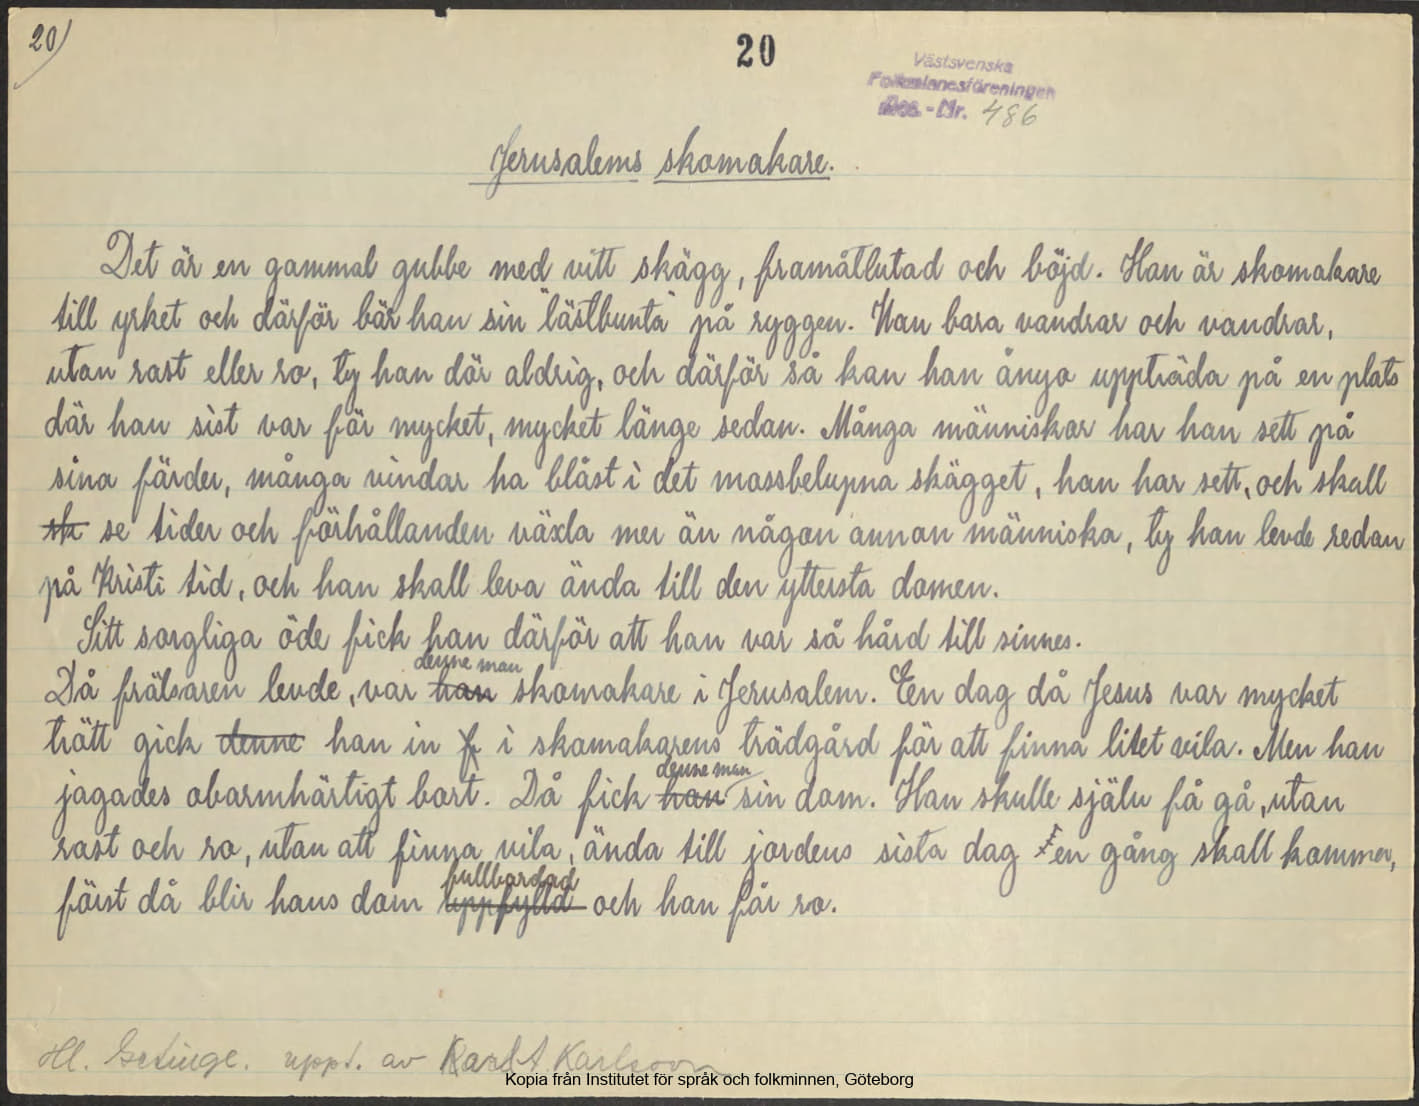 20)
20
Västsvenska
Folkminnesföreningen
Acc. - Nr. 486
Jerusalems skomakare.
Det är en gammal gubbe med vitt skägg, framåtlutad och böjd. Han är skomakare
till yrket och därför bär han sin "lästbunta" på ryggen. Han bara vandrar och vandrar,
utan rast eller ro, ty han dör aldrig, och därför så kan han ånyo uppträda på en plats
där han sist var för mycket, mycket länge sedan. Många människor har han sett på
sina färder, många vindar ha blåst i det mossbelupna skägget, han har sett, och skall
sk se tider och förhållanden växla mer än någon annan människa, ty han levde redan
på Kristi tid, och han skall leva ända till den yttersta domen.
Sitt sorgliga öde fick han därför att han var så hård till sinnes.
denne man
Då frälsaren levde, var han skomakare i Jerusalem. En dag då Jesus var mycket
trött gick denne han in f i skomakarens trädgård för att finna litet vila. Men han
denne man
jagades obarmhärtigt bort. Då fick han sin dom. Han skulle själv få gå, utan
rast och ro, utan att finna vila, ända till jordens sista dag en gång skall kommer,
fullbordad
först då blir hans dom uppfylld och han får ro.
Hl. Getinge. uppt. av Karl A. Karlsson
Kopia från Institutet för språk och folkminnen, Göteborg